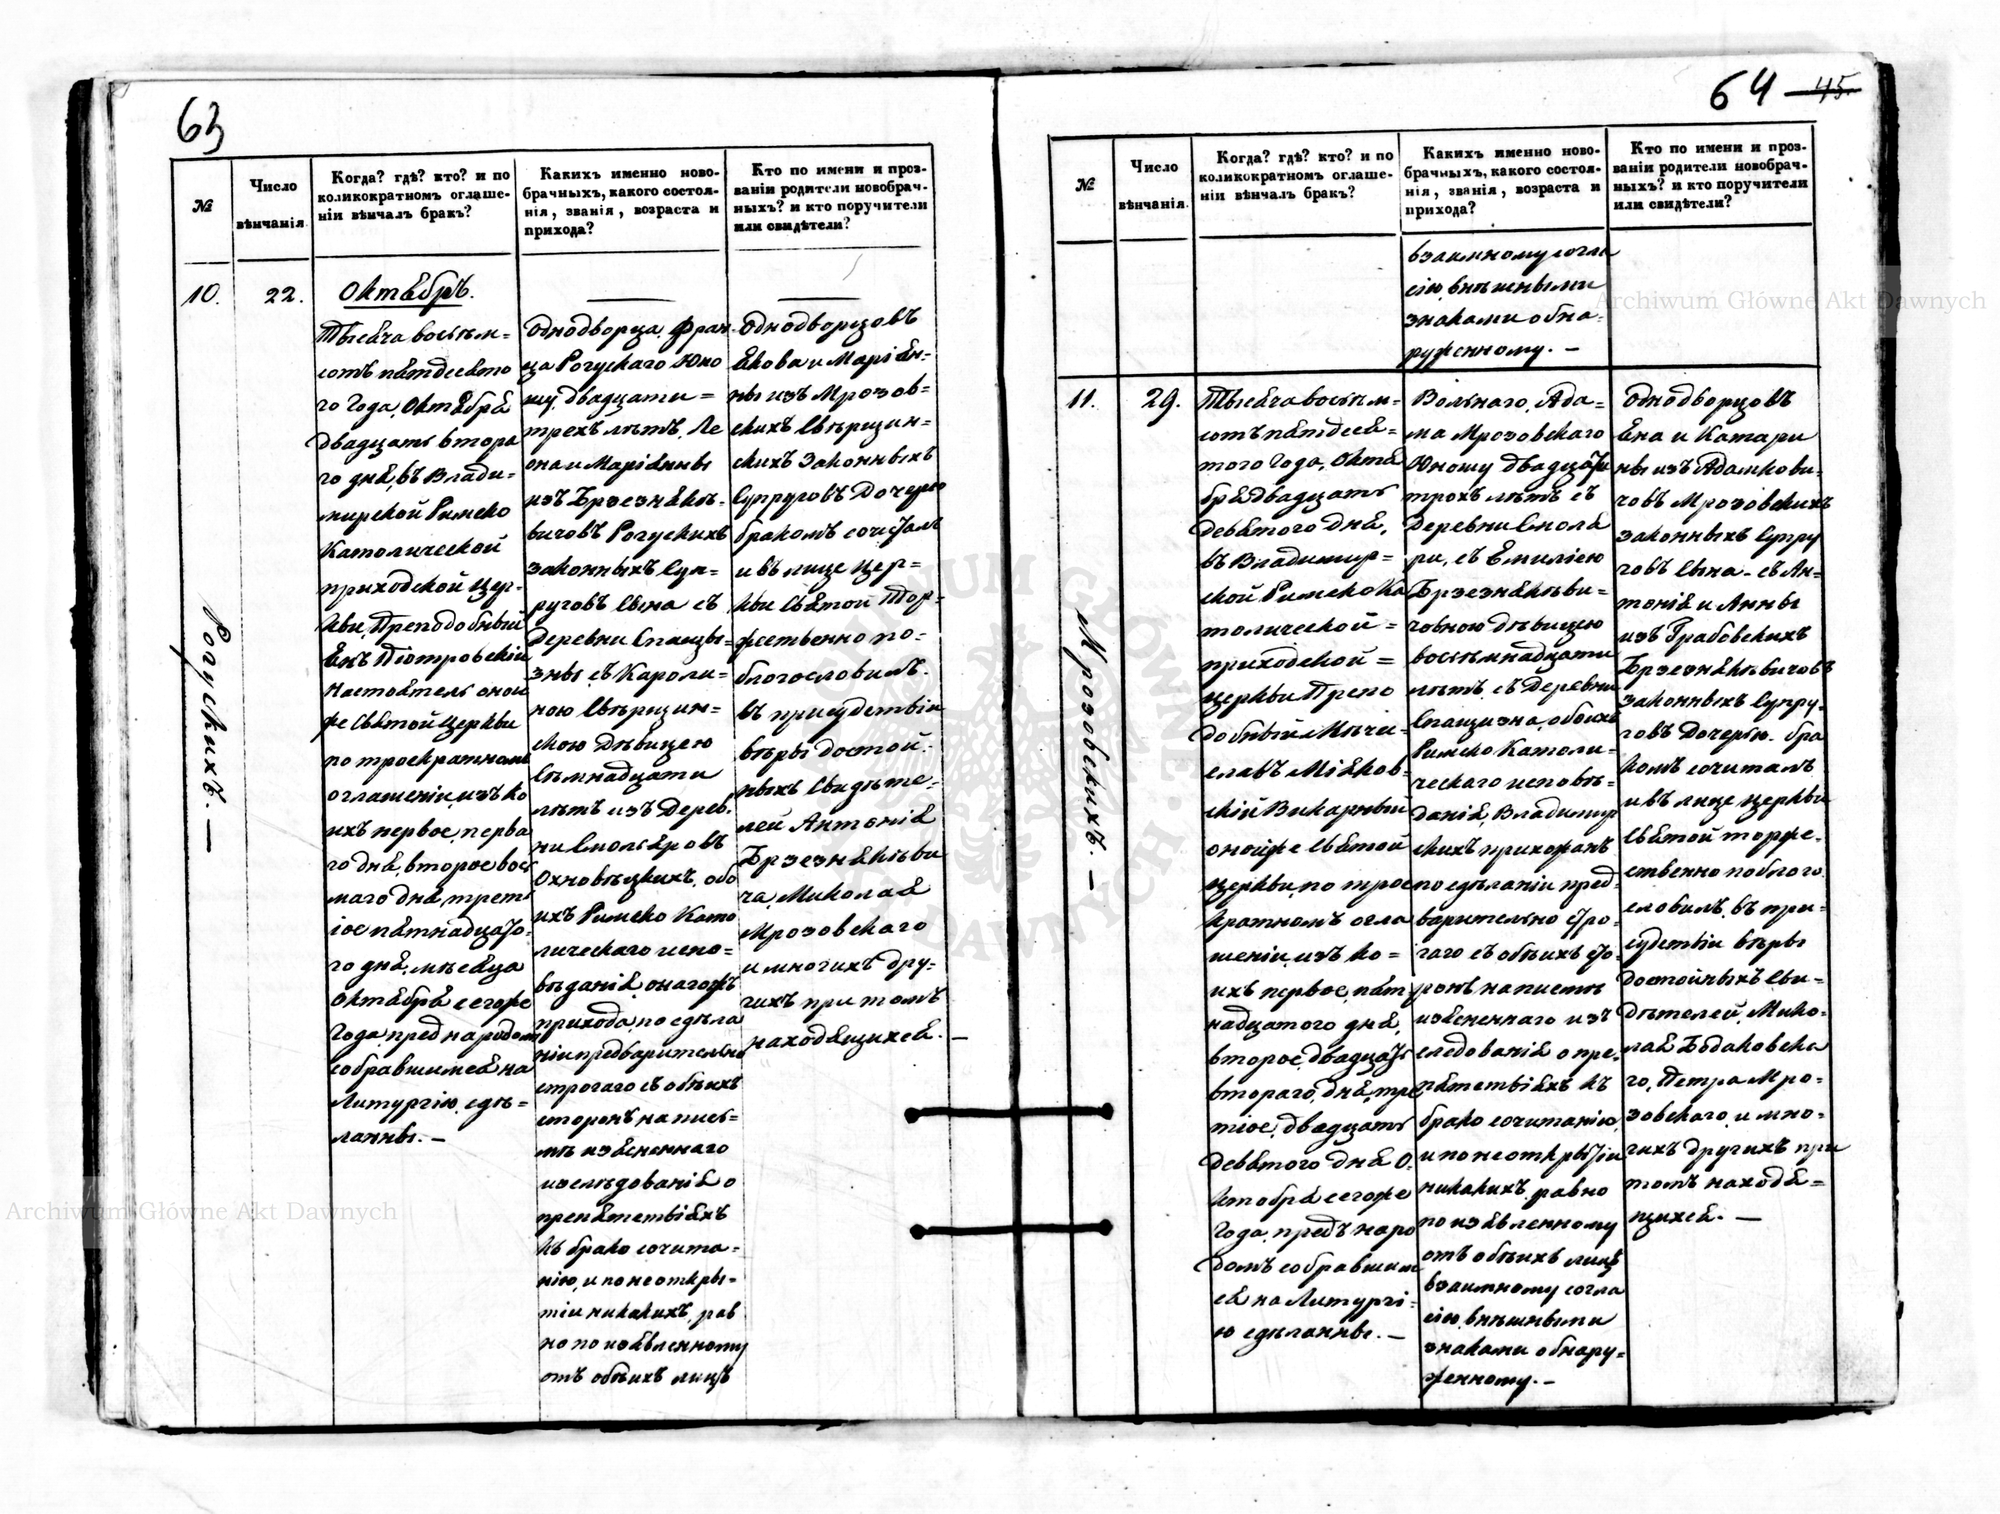 63
№
Число
вѣнчанія.
Когда? гдѣ? кто? и по
коликократномъ оглаше-
ніи вѣнчалъ бракъ?
Какихъ именно ново-
брачныхъ, какого состоя-
нія, званія, возраста и
прихода?
Кто по имени и проз-
ваніи родители новобрач-
ныхъ? и кто поручители
или свидѣтели?
10.
22.
Рогускихъ. —
Октябръ.
Тысяча восьтьм-
сотъ пятдесято
го года, Октября
двадцать втора
го дня, въ Влади-
мирской Римско
Католической
приходской Цер-
кви, Преподобный
Янъ Піотровскій
Настоятель оной
же святой Церкви
по троекратномъ
оглашеніи, изъ ко
ихъ первое, перва
го дня, второе вось
маго дня, трет
іое пятнадцато-
го дня, мѣсяца
Октября сегоже
Года, предъ народомъ
собравшимся на
Литургію, сдѣ-
ланны. —
Однодворца Фран
ца Рогускаго Юно
шу, двадцати =
трехъ лѣтъ, Ле
она и Маріянны
изъ Брзезнякѣ-
вичовъ Рогускихъ
законныхъ Суп-
руговъ Сына съ
Деревни Спащы-
зны, съ Кароли-
ною Свѣрщин-
скою Дѣвицею
сѣмнадцати
лѣтъ изъ Дерев-
ни Смоляровъ
Охновѣцкихъ, обо
ихъ Римско Като
лическаго испо-
вѣданія, онагожъ
прихода, по сдѣла
ніи предварительно
строгаго съ обѣихъ
сторонъ на пись-
мѣ изясненнаго
изслѣдованія о
препятствіяхъ
къ брако сочита-
нію, и по не откры-
тіи никакихъ, рав
но по изъявленному
отъ обѣихъ лицъ
Однодворцовъ
Якова и Маріян-
ны изъ Мрозов-
скихъ Свѣрщин-
скихъ Законныхъ
Супруговъ Дочерю
бракомъ сочеталъ
и въ лице Цер-
кви Святой Тор-
жественно по-
благословилъ.
въ присудствіи
вѣры достой-
ныхъ Свидѣте-
лей Антонія
Брзезнякѣви
ча, Миколая
Мрозовскаго
и многихъ дру-
гихъ при томъ
находящихся. —
64 45.
№
Число
вѣнчанія.
Когда? гдѣ? кто? и по
коликократномъ оглаше-
ніи вѣнчалъ бракъ?
Какихъ именно ново-
брачныхъ, какого состоя-
нія, званія, возраста и
прихода?
Кто по имени и проз-
ваніи родители новобрач-
ныхъ? и кто поручители
или свидѣтели?
взаимному согла
сію, внѣшными
знаками обна-
руженному. —
11.
29.
Мрозовскихъ. —
Тысяча восьтьм-
сотъ пятдеся-
того года, Октя
бря двадцать
девятого дня,
въ Владимир-
ской Римско Ка
толической =
приходской =
церкви Препо
добный Мѣчи-
славъ Мѣнков-
скій Викарный
онойже Святой
Церкви, по трое
кратномъ огла
шеніи, изъ ко-
ихъ первое, пят
надцатого дня,
второе, двадцать
втораго, дня, тре
тіое, двадцать
девятого дня О-
ктобря сегоже
года, предъ наро
домъ собравшим
ся на Литургі-
ю сдѣланны. —
Вольнаго, Ада-
ма Мрозовскаго
Юношу двадцати
трохъ лѣтъ съ
Деревни Смоля
ри, съ Емиліею
Брзезнякѣви-
човною Дѣвицею
восьтьмнадцати
лѣтъ, съ Деревни
Спащизна, обоихъ
Римско Католи-
ческаго исповѣ-
данія, Владимир
скихъ прихожанъ
по сдѣланіи пред-
варительно стро-
гаго съ обѣихъ сто-
ронъ на письмѣ
изясненнаго из-
следованія о пре-
пятствіяхъ къ
брако сочитанію,
и по не открытіи
никакихъ, равно
по изъявленному
отъ обѣихъ лицъ
взаимному согла
сію, внѣшными
знаками обнару-
женному. —
Однодворцовъ
Яна и Катари
ны изъ Адамкови-
човъ Мрозовскихъ
законныхъ Супру
говъ Сына - съ Ан-
тонія и Анны
изъ Грабовскихъ
Брзезнякѣвичовъ
законныхъ Супру-
говъ Дочерью. бра
комъ сочиталъ
и въ лице Церкви
Святой торже-
ственно поблаго-
словилъ, въ при-
судствіи вѣры
достойныхъ Сви-
дѣтелей, Мико-
лая Бодаковска
го, Петра Мро-
зовскаго, и мно-
гихъ другихъ при
томъ находя-
щихся. —
Archiwum Główne Akt Dawnych
Archiwum Główne Akt Dawnych
ARCHIWUM GŁÓWNE AKT DAWNYCH